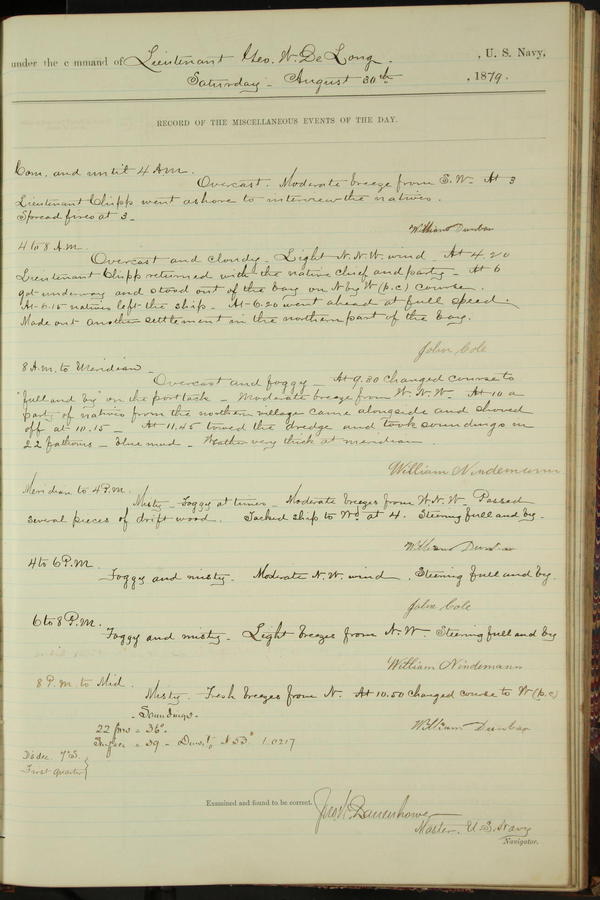 under the c mmand of Lieutenant Geo. W. De Long. , U. S. Navy,
Saturday - August 30th , 1879.
RECORD OF THE MISCELLANEOUS EVENTS OF THE DAY.
Com. and until 4 A.M.
Overcast. Moderate breeze from S.W. At 3
Lieutenant Chipp went ashore to interview the natives.
Spread fires at 3.
William Dunbar
4 to 8 A.M.
Overcast and cloudy - Light N.N.W. wind - At 4.20
Lieutenant Chipp returned with the native chief and party - At 6
got underway and stood out of the bay on N by W (p.c) course.
At 6.15 natives left the ship - At 6.20 went ahead at full speed.
Made out another settlement in the northern part of the bay.
John Cole
8 A.M. to Meridian -
Overcast and foggy - At 9.30 changed course to
"full and by" on the port tack - Moderate breeze from W.N.W. At 10 a
party of natives from the northern village came alongside and shoved
off at 10.15 - At 11.45 towed the dredge and took soundings in
22 fathoms - blue mud - Weather very thick at meridian.
William Nindemann
Meridian to 4 P.M.
Misty - Foggy at times - Moderate breezes from W.N.W. Passed
several pieces of drift wood. Tacked ship to Wd at 4. Steering full and by.
William Dunbar
4 to 6 P.M.
Foggy and misty. Moderate N.W. wind. Steering full and by.
John Cole
6 to 8 P.M.
Foggy and misty - Light breezes from N.W. Steering full and by
William Nindemann
8 P.M. to Mid.
Misty. Fresh breezes from N. At 10.50 changed course to W (p.c)
- Soundings -
22 fms = 36°
William Dunbar
Surface = 39 - Density 53° 1.0217
First quarter
Examined and found to be correct.
Jno W. Danenhower
Master, U.S. Navy
Navigator.